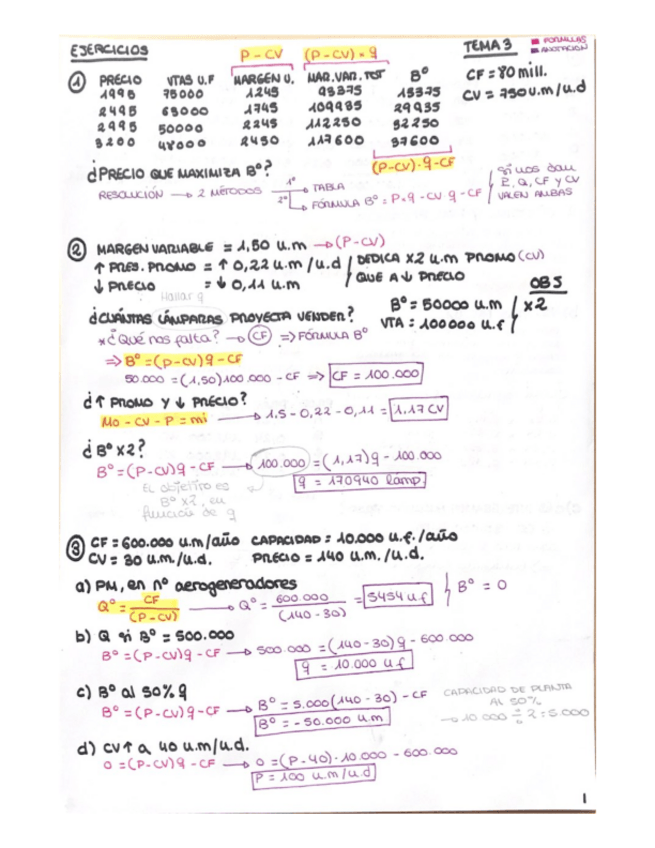 EJERCICIOS
P - CV (P - CV) · q
TEMA 3
FORMULAS
ANOTACION
① PRECIO VTAS U.F MARGEN U. MAR. VAR. TOT Bº
1995 75000 1245 93375 13375
2495 63000 1745 109935 29935
2995 50000 2245 112250 32250
3200 48000 2450 117600 37600
CF = 80 mill.
CV = 750 u.m/u.d
(P-CV)·q-CF
¿PRECIO QUE MAXIMIZA Bº?
RESOLUCIÓN → 2 MÉTODOS
1º → TABLA
2º → FÓRMULA Bº = P·q - CV q - CF
si nos dan
P, Q, CF y CV
VALEN AMBAS
② MARGEN VARIABLE = 1,50 u.m → (P-CV)
↑ PRES. PROMO = ↑ 0,22 u.m/u.d
↓ PRECIO = ↓ 0,11 u.m
DEDICA x2 u.m PROMO (CV)
QUE A ↓ PRECIO
Hallar q
¿CUÁNTAS LÁMPARAS PROYECTA VENDER?
OBJ
Bº = 50000 u.m
VTA = 100000 u.f
x2
* ¿Qué nos falta? → CF => FÓRMULA Bº
=> Bº = (P-CV)q - CF
50.000 = (1,50)100.000 - CF => CF = 100.000
¿↑ PROMO Y ↓ PRECIO?
Mo - CV - P = mi → 1,5 - 0,22 - 0,11 = 1,17 CV
¿Bº x2?
Bº = (P-CV)q - CF → 100.000 = (1,17)q - 100.000
q = 170940 lámp.
EL objetivo es
Bº x2, en
función de q
③ CF = 600.000 u.m/año CAPACIDAD = 10.000 u.f./año
CV = 30 u.m./u.d. PRECIO = 140 u.m./u.d.
a) PM, en nº aerogeneradores
Qº = CF / (P-CV) → Qº = 600.000 / (140-30) = 5454 u.f
Bº = 0
b) Q si Bº = 500.000
Bº = (P-CV)q - CF → 500.000 = (140-30)q - 600.000
q = 10.000 u.f
c) Bº al 50% q
Bº = (P-CV)q - CF → Bº = 5.000(140-30) - CF
Bº = -50.000 u.m
CAPACIDAD DE PLANTA
AL 50%
→ 10.000 ÷ 2 = 5.000
d) CV ↑ a 40 u.m/u.d.
0 = (P-CV)q - CF → 0 = (P-40)·10.000 - 600.000
P = 100 u.m/u.d
1